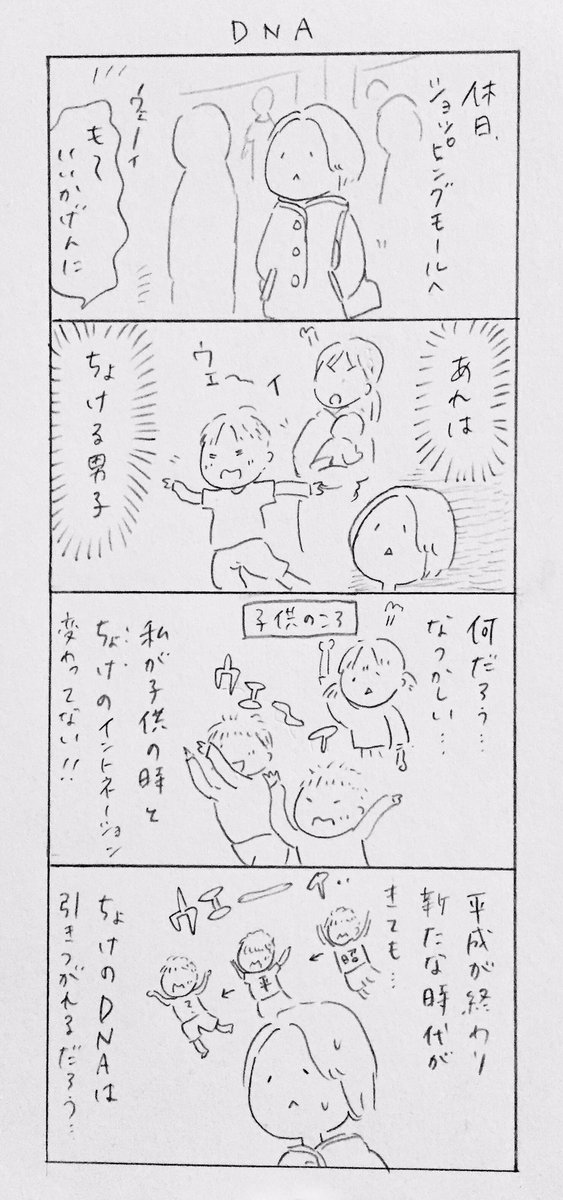 DNA
休日、
ショッピングモールへ
ウェーイ
もて
いいかげんに
あれは
ウェ〜イ
ちょける男子
何だろう…
なつかしい…
子供のころ
ウェ〜イ
私が子供の時と
ちょけのイントネーション
変わってない!!
平成が終わり
新たな時代が
きても…
ウェーイ…
昭
平
?
ちょけのDNAは
引きつがれるだろう…